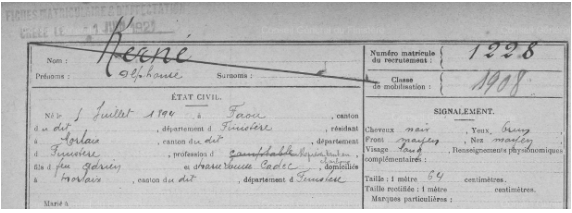 CRÉÉE LE 1 JUIN 1921
Nom : Kerné
Prénoms : Alphonse Surnoms :
Numéro matricule du recrutement : 1228
Classe de mobilisation : 1908
ÉTAT CIVIL.
Né le 5 Juillet 1894 à Faou, canton
du dit, département d Finistère, résident
à Morlaix, canton du dit, département
d Finistère, profession d comptable
fils d feu Adrien et d veuve Cadec, domiciliés
à Morlaix, canton du dit, département d Finistère
Marié à
SIGNALEMENT.
Cheveux noir, Yeux brun
Front moyen, Nez moyen
Visage long, Renseignements physionomiques
complémentaires :
Taille : 1 mètre 64 centimètres.
Taille rectifiée : 1 mètre centimètres.
Marques particulières :